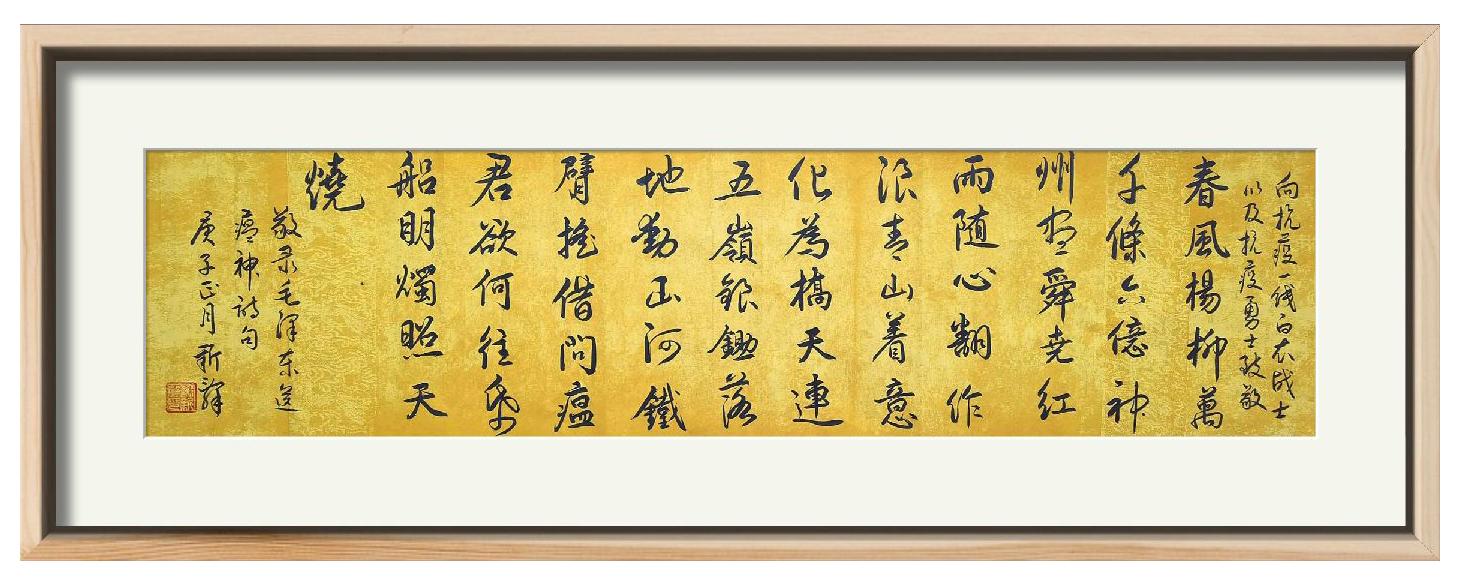 向抗疫一线白衣战士
以及抗疫勇士致敬
春風楊柳萬
千條六億神
州尽舜尭紅
雨随心翻作
浪青山着意
化為橋天連
五嶺銀鋤落
地動山河鐵
臂搖借問瘟
君欲何往帋
船明燭照天
燒
敬录毛泽东送
瘟神诗句
庚子正月新